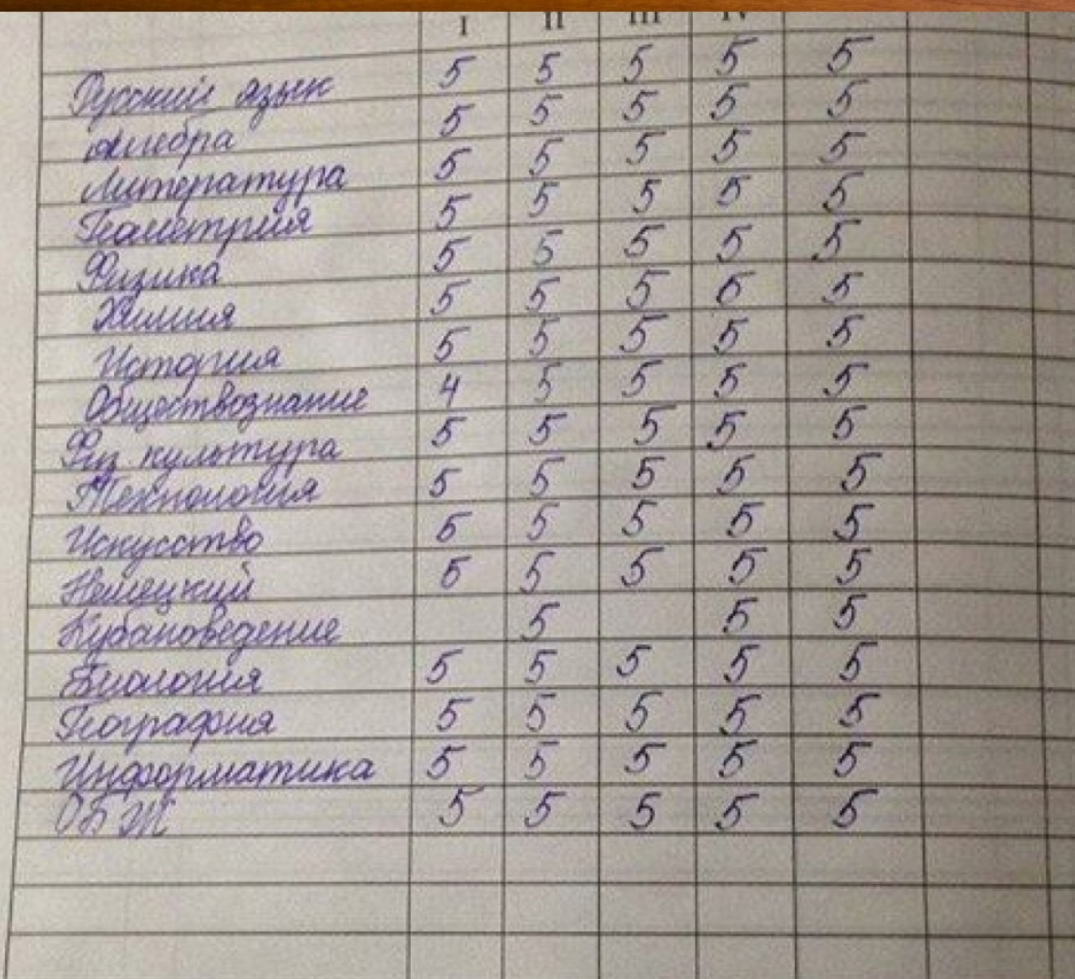 I II III IV
Русский язык 5 5 5 5 5
Алгебра 5 5 5 5 5
Литература 5 5 5 5 5
Геометрия 5 5 5 5 5
Физика 5 5 5 5 5
Химия 5 5 5 5 5
История 5 5 5 5 5
Обществознание 4 5 5 5 5
Физ. культура 5 5 5 5 5
Технология 5 5 5 5 5
Искусство 5 5 5 5 5
Немецкий 5 5 5 5 5
Кубановедение 5 5 5
Биология 5 5 5 5 5
География 5 5 5 5 5
Информатика 5 5 5 5 5
ОБЖ 5 5 5 5 5